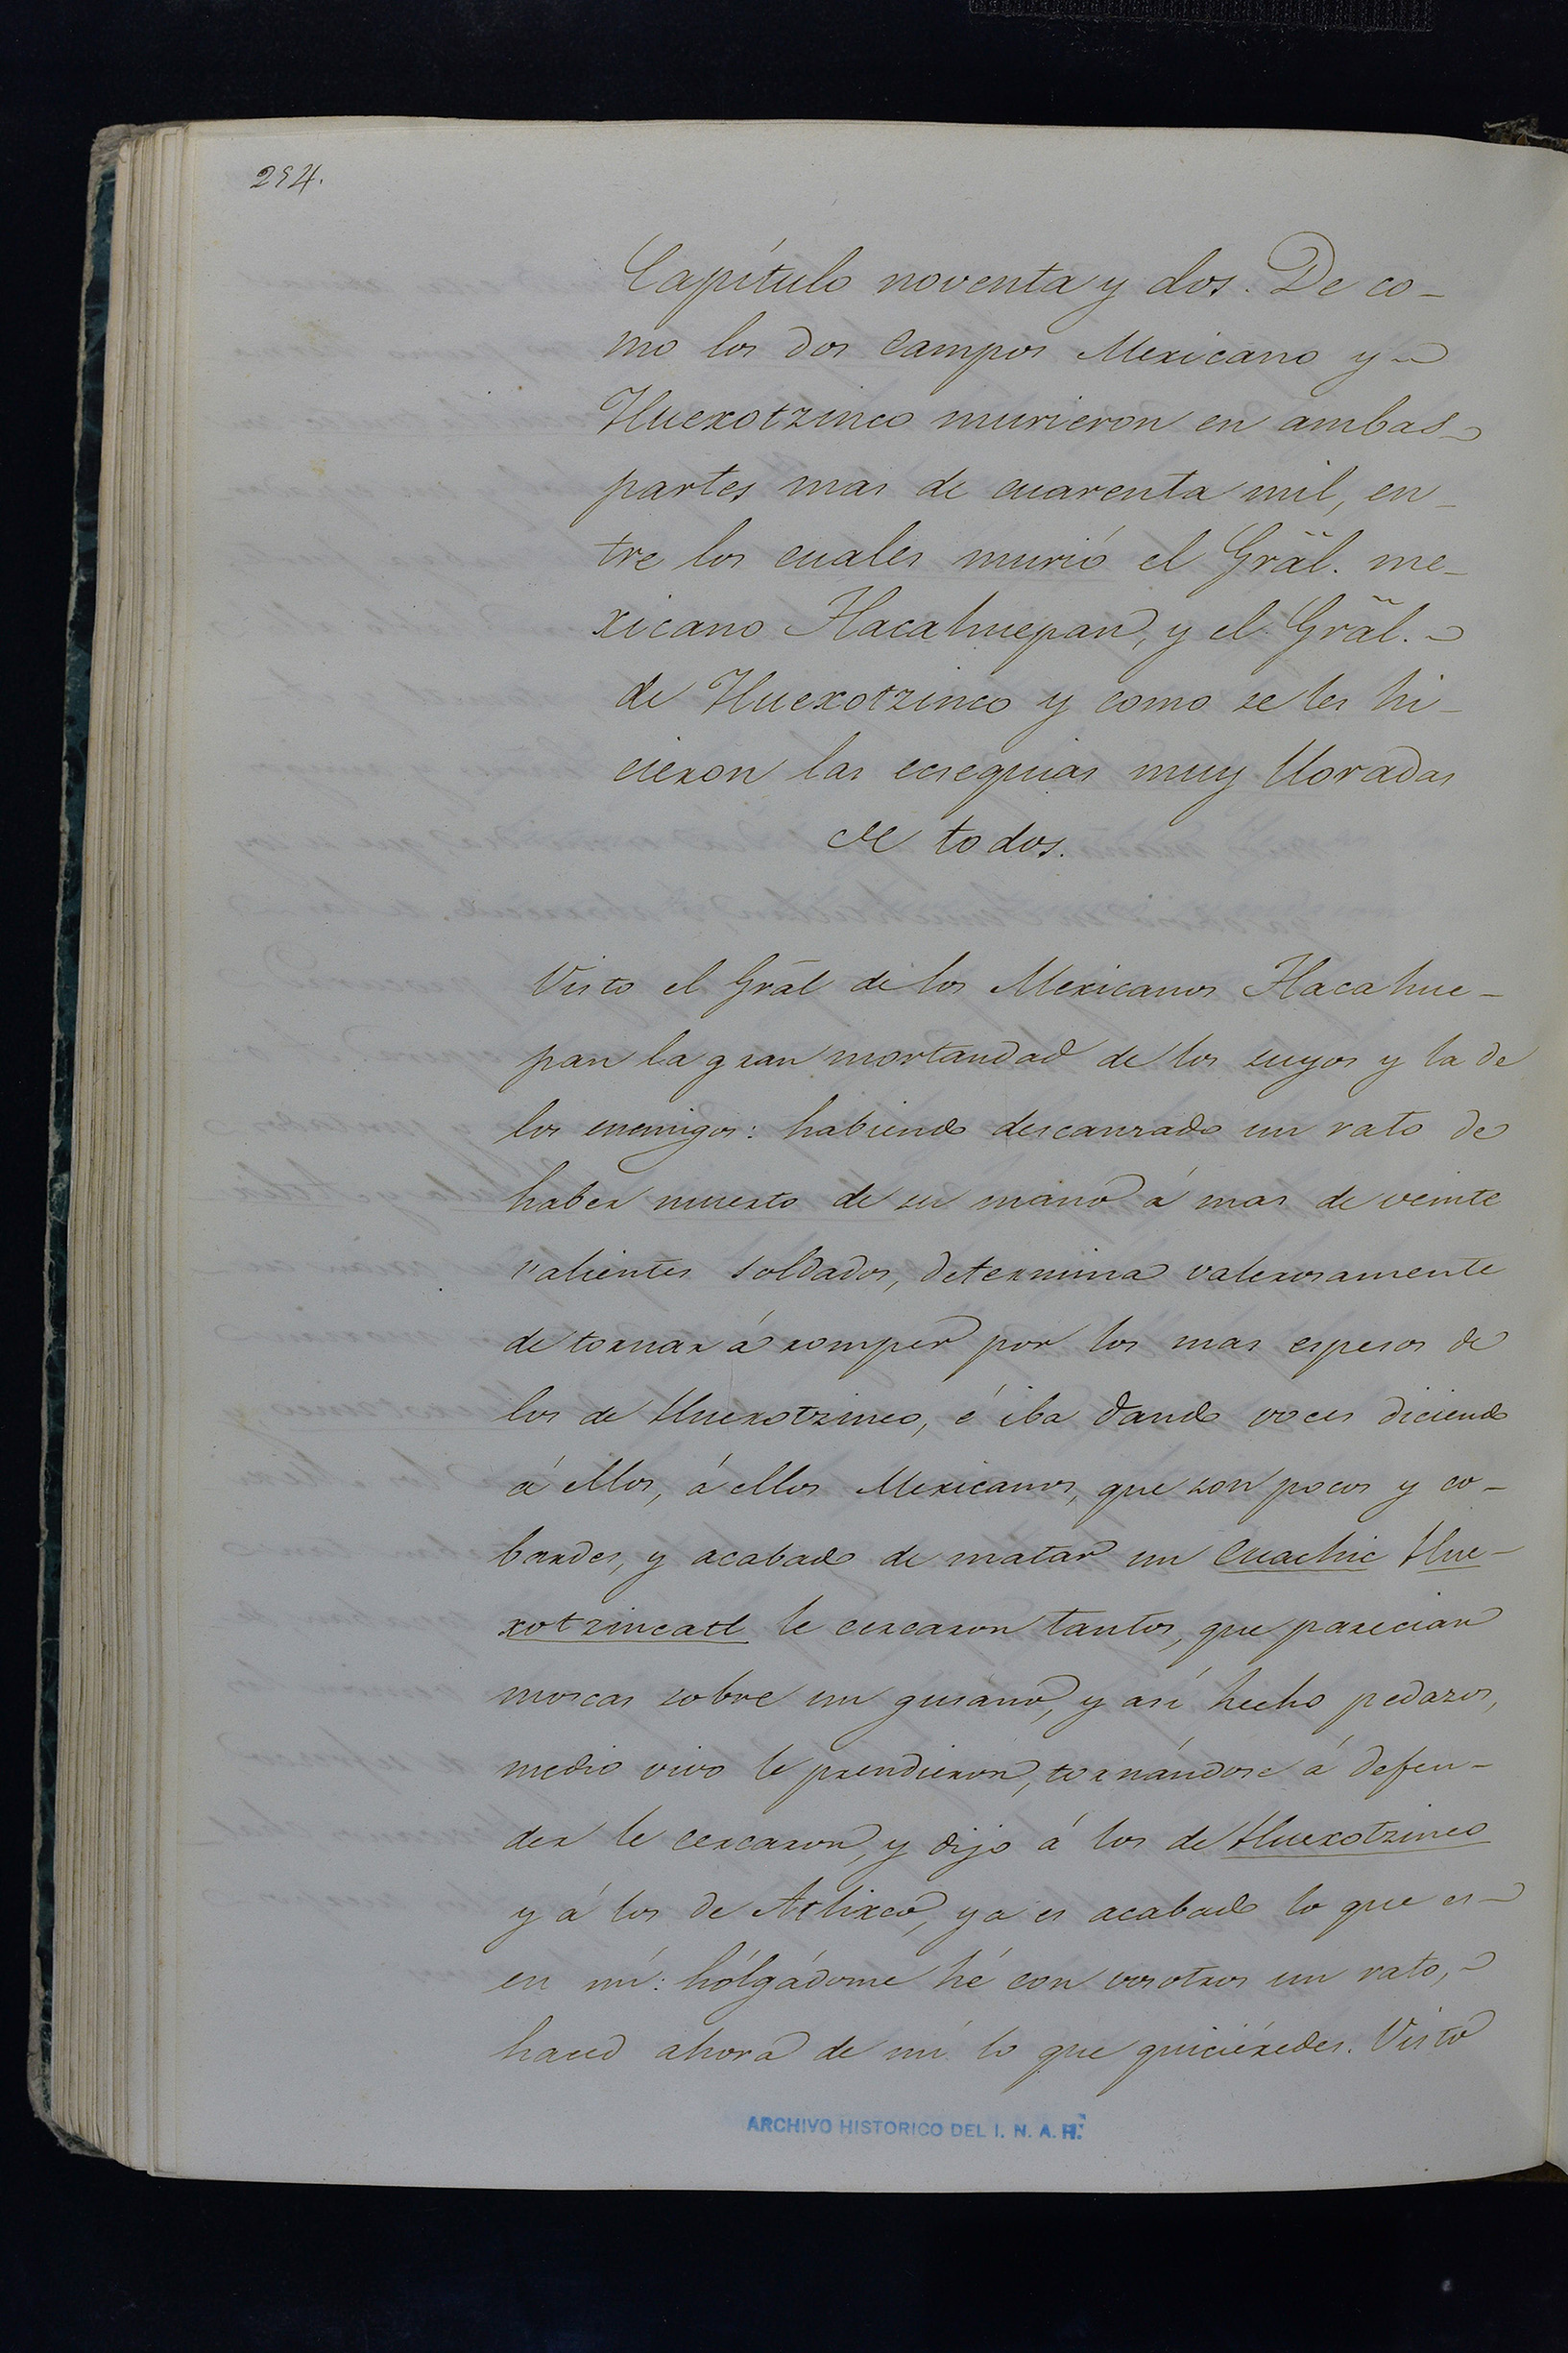 294.
Capítulo noventa y dos. De co-
mo los dos campos Mexicano y
Huexotzinco murieron en ambas
partes mas de cuarenta mil, en-
tre los cuales murió el Grãl. me-
xicano Tlacahuepan, y el Grãl.
de Huexotzinco y como se les hi-
cieron las esequias muy lloradas
de todos.
Visto el Grãl de los Mexicanos Tlacahue-
pan la gran mortandad de los suyos y la de
los enemigos: habiendo descansado un rato de
haber muerto de su mano á mas de veinte
valientes soldados, determina valerosamente
de tornar á romper por los mas espesos de
los de Huexotzinco, é iba dando voces diciendo
á ellos, á ellos Mexicanos, que son pocos y co-
bardes, y acabado de matar un Cuachic Hue-
xotzincatl le cercaron tantos, que parecian
moscas sobre un gusano, y asi hecho pedazos,
medio vivo le prendieron, tornándose á defen-
der le cercaron, y dijo á los de Huexotzinco
y á los de Atlixco, ya es acabado lo que es
en mí: hólgádome hé con vosotros un rato,
haced ahora de mí lo que quiciéredes. Visto
ARCHIVO HISTORICO DEL I. N. A. H.